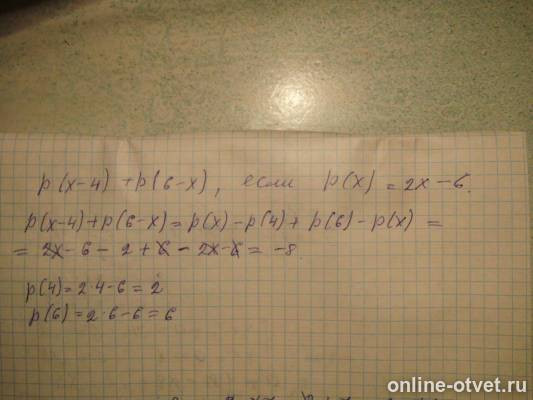 p(x-4)+p(6-x), если p(x) = 2x-6.
p(x-4)+p(6-x)=p(x)-p(4)+p(6)-p(x) =
= 2x-6-2+6-2x-6= -8
p(4)=2·4-6=2
p(6)=2·6-6=6
online-otvet.ru